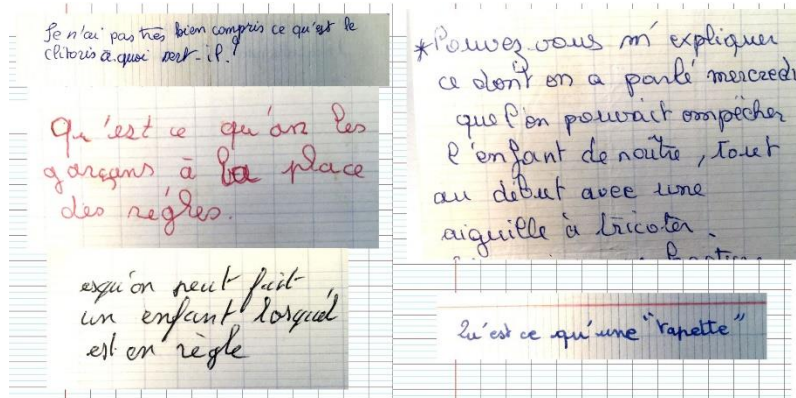 Je n'ai pas très bien compris ce qu'est le
clitoris à quoi sert-il?
Qu'est ce qu'on les
garçons à la place
des règles.
esqu'on peut fait
un enfant lorsquel
est en règle
*Pouvez vous m'expliquer
ce dont on a parlé mercredi
que l'on pouvait empêcher
l'enfant de naître, tout
au début avec une
aiguille à tricoter.
Qu'est ce qu'une "tapette"